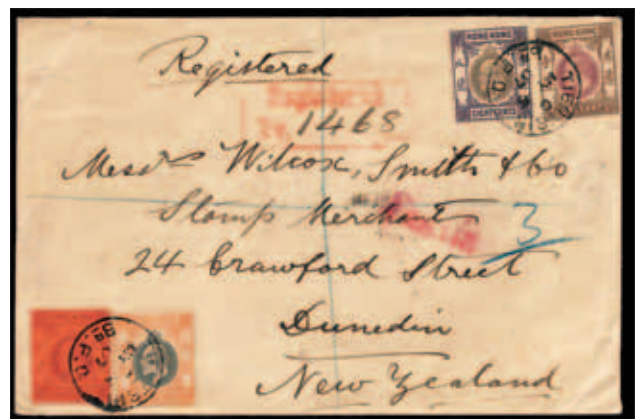 HONG KONG HONG KONG
EIGHT CENTS
Registered
1468
Messrs Wilcox, Smith & Co
Stamp Merchants
3
24 Crawford Street
Dunedin
New Zealand
Br. P.O.